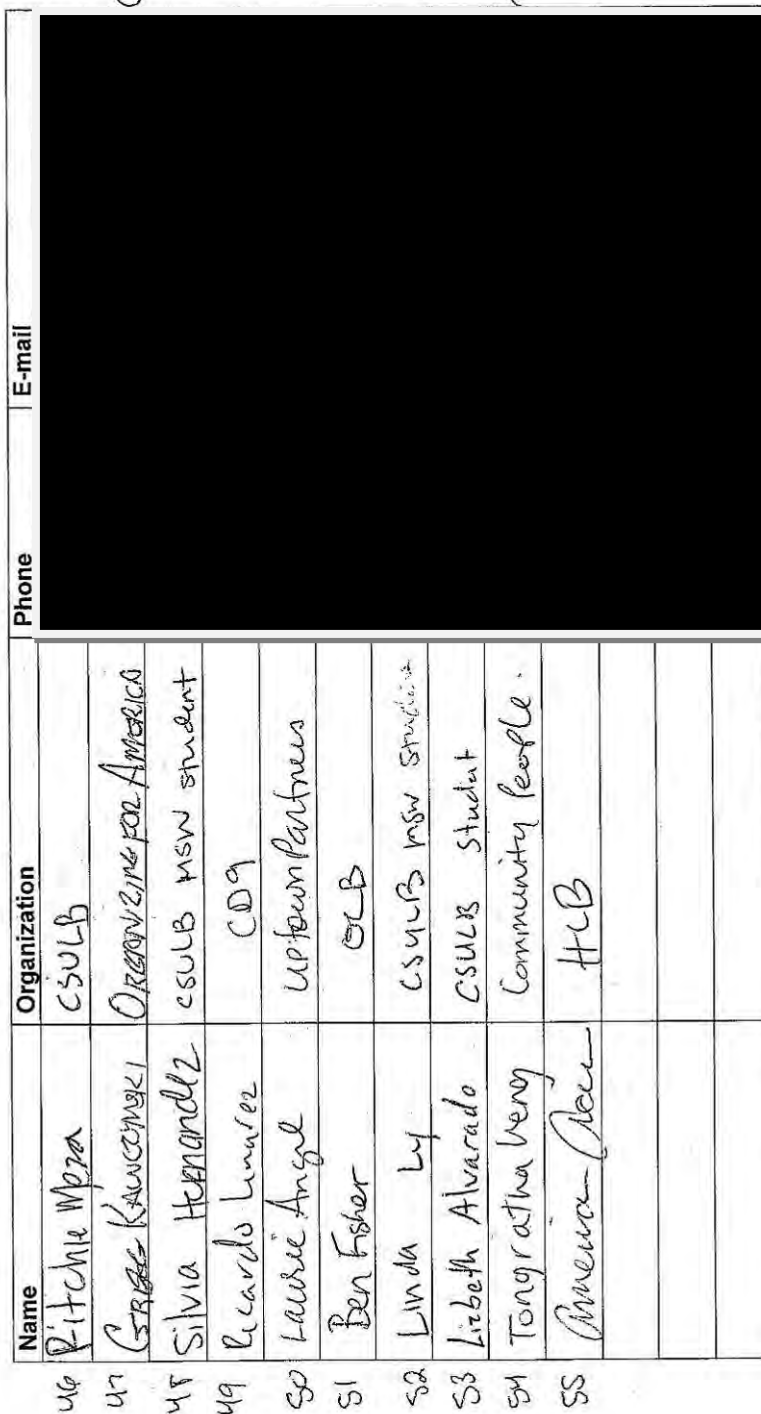 Name Organization Phone E-mail
46 Ritchie CSULB
47 Gregg ORGANIZING FOR AMERICA
48 Silvia Hernandez CSULB MSW student
49 Ricardo Linarez CD9
50 Laurie Angel Uptown Partners
51 Ben Fisher
52 Linda Ly CSULB MSW
53 Lizbeth Alvarado CSULB Student
54 Tongratha Veng Community People.
55 HLB